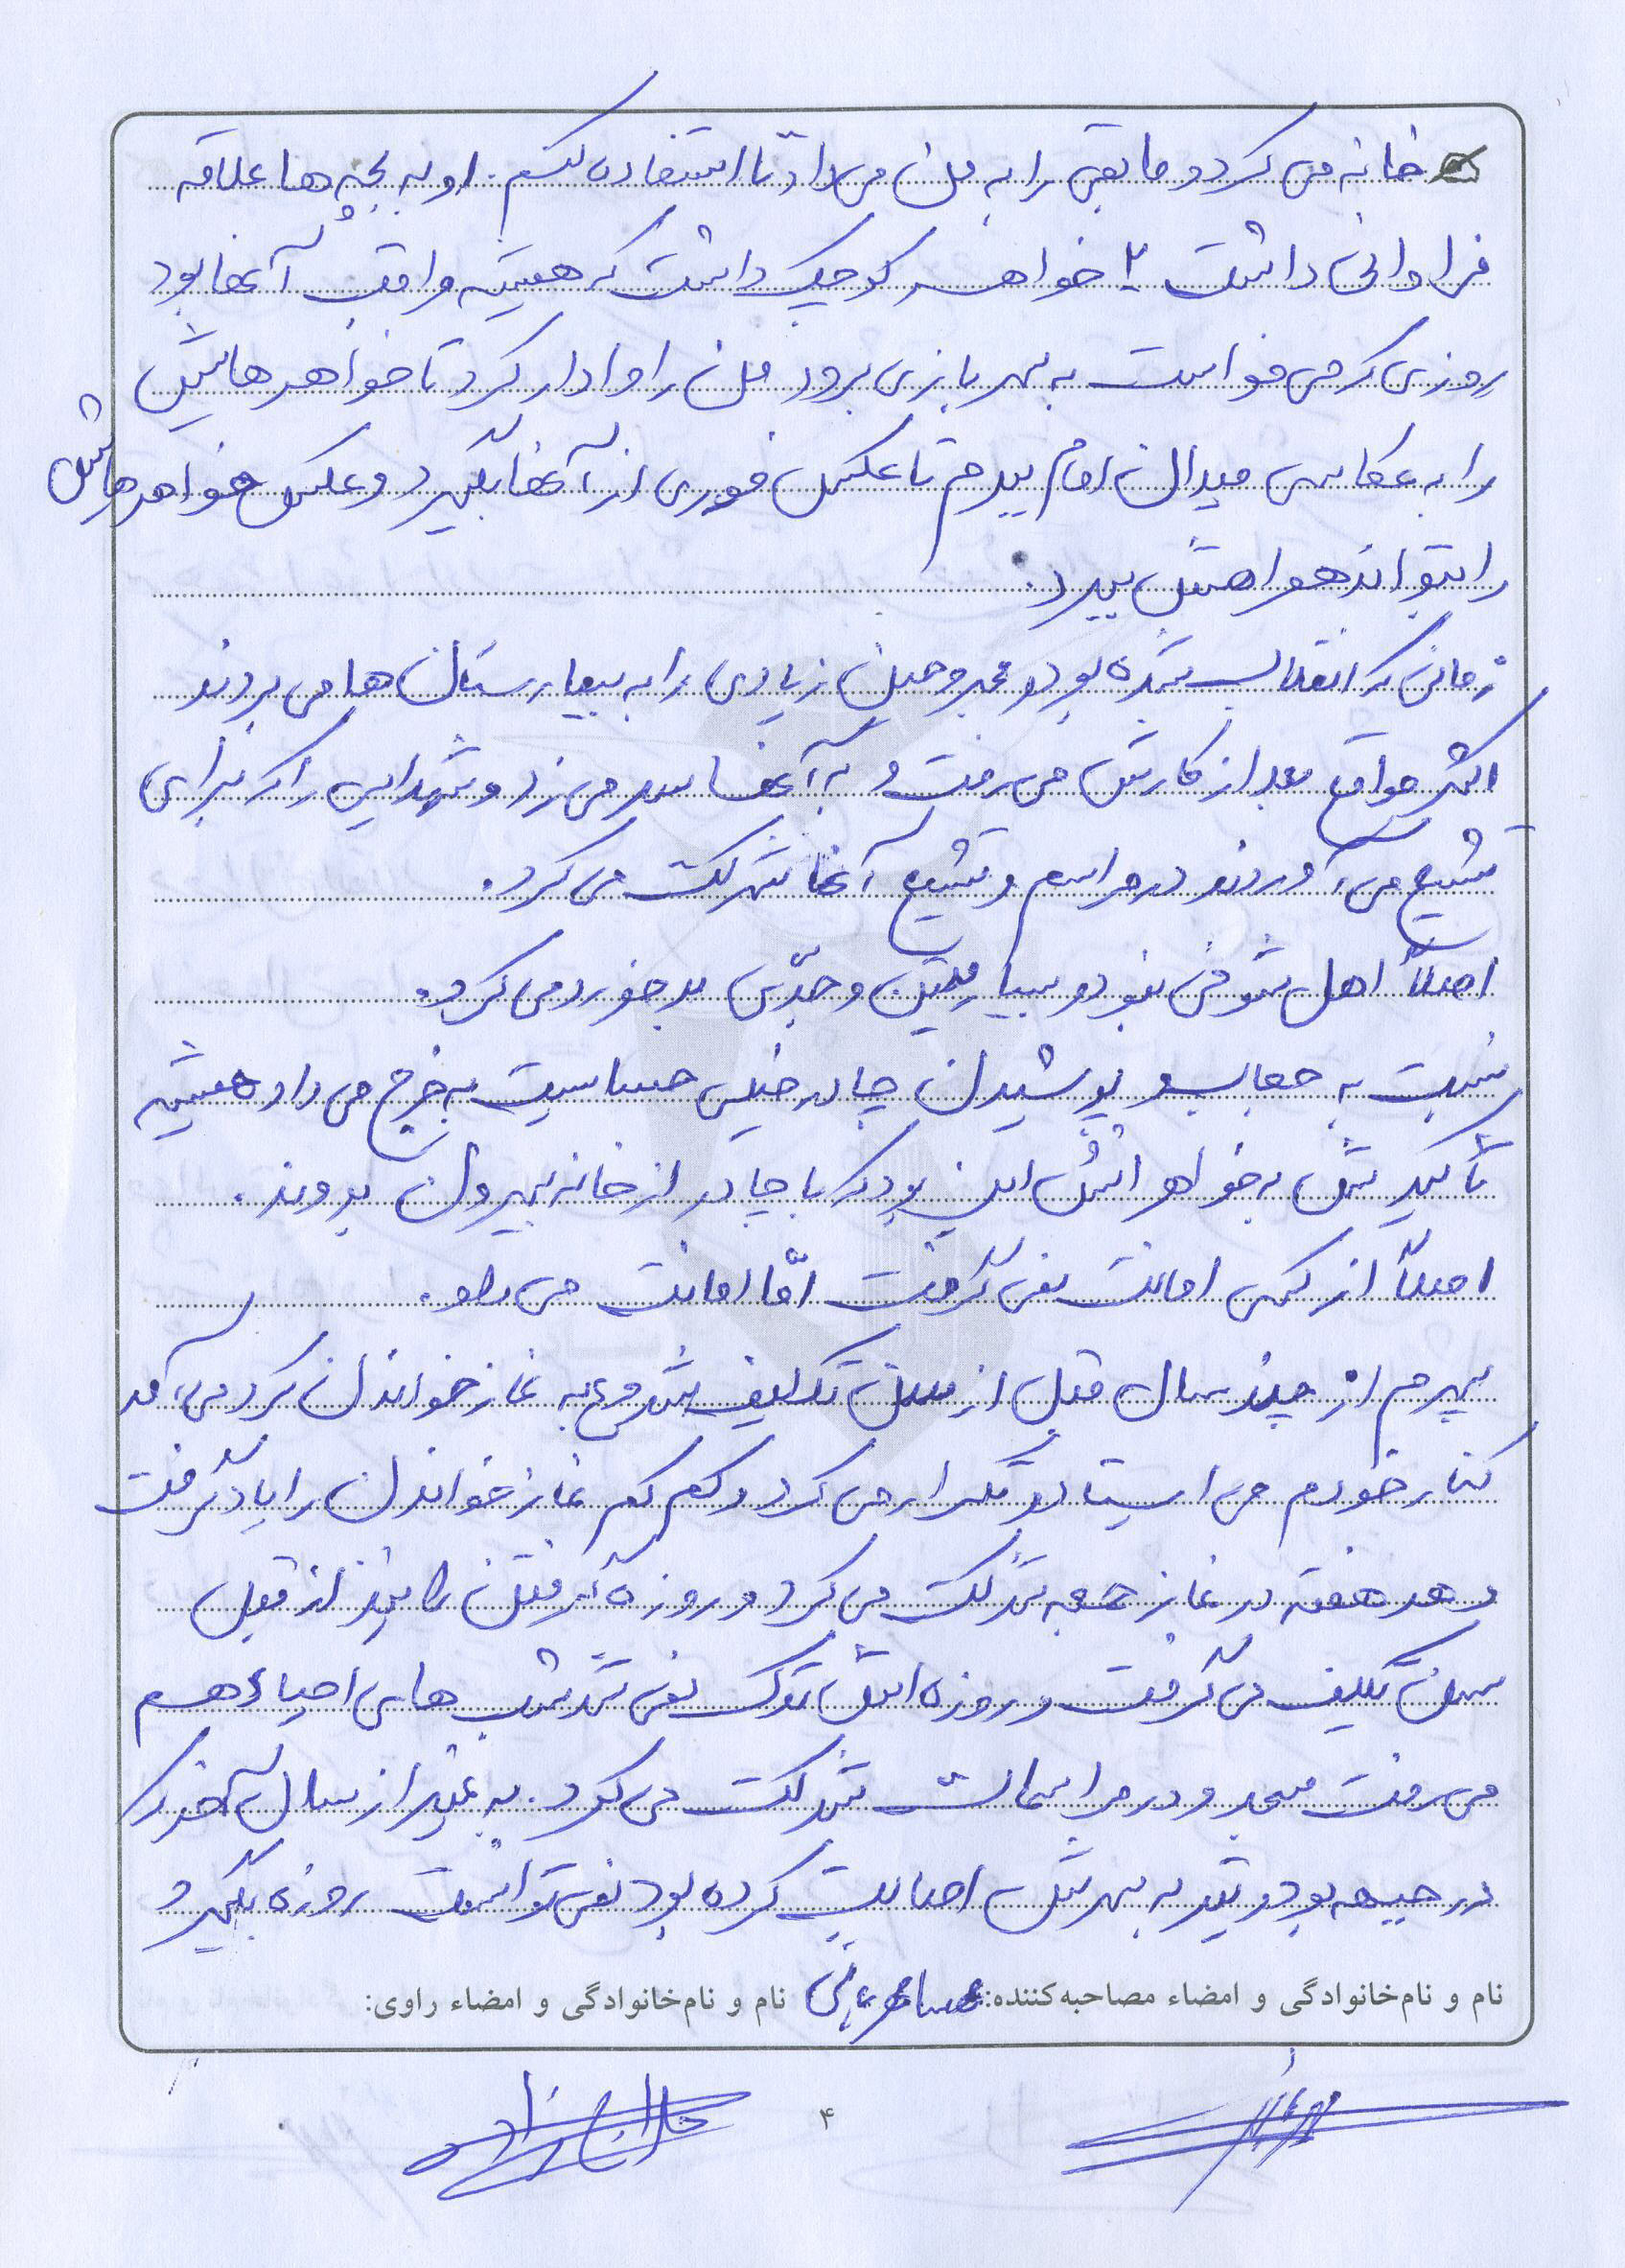 خانه می کرد و مابقی را به من می داد تا استفاده کنم. او به بچه ها علاقه
فراوانی داشت ۲ خواهر کوچک داشت که همیشه مراقب آنها بود
روزی که می خواست به سربازی برود من را وادار کرد تا خواهرهایش
را به عکاسی میدان امام ببرم تا عکس فوری از آنها بگیرد و عکس خواهرهایش
را بتواند همراهش ببرد.
زمانی که انقلاب شده بود و مجروحین زیادی را به بیمارستان ها می بردند
اکثر مواقع بعد از کارش می رفت و به آنها سر می زد و شهدایی را که برای
تشییع می آوردند در مراسم و تشییع آنها شرکت می کرد.
اصلاً اهل شوخی نبود و بسیار متین و جدّی برخورد می کرد.
نسبت به حجاب و پوشیدن چادر خیلی حساسیت به خرج می داد همیشه
تأکیدش به خواهرانش این بود که با چادر از خانه بیرون بروند.
اصلاً از کسی امانت نمی گرفت امّا امانت می داد.
پسرم از چند سال قبل از سن تکلیف شروع به نماز خواندن کرد می آمد
کنار خودم می ایستاد و تکرار می کرد و کم کم نماز خواندن را یاد گرفت
و هر هفته در نماز جمعه شرکت می کرد و روزه گرفتن را نیز از قبل
سن تکلیف می گرفت و روزه اش ترک نمی شد شب های احیاء هم
می رفت مسجد و در مراسمات شرکت می کرد. به غیر از سال آخر که
در جبهه بود و تیر به سرش اصابت کرده بود نمی توانست روزه بگیرد
نام و نام‌خانوادگی و امضاء مصاحبه‌کننده: نام و نام‌خانوادگی و امضاء راوی:
۴